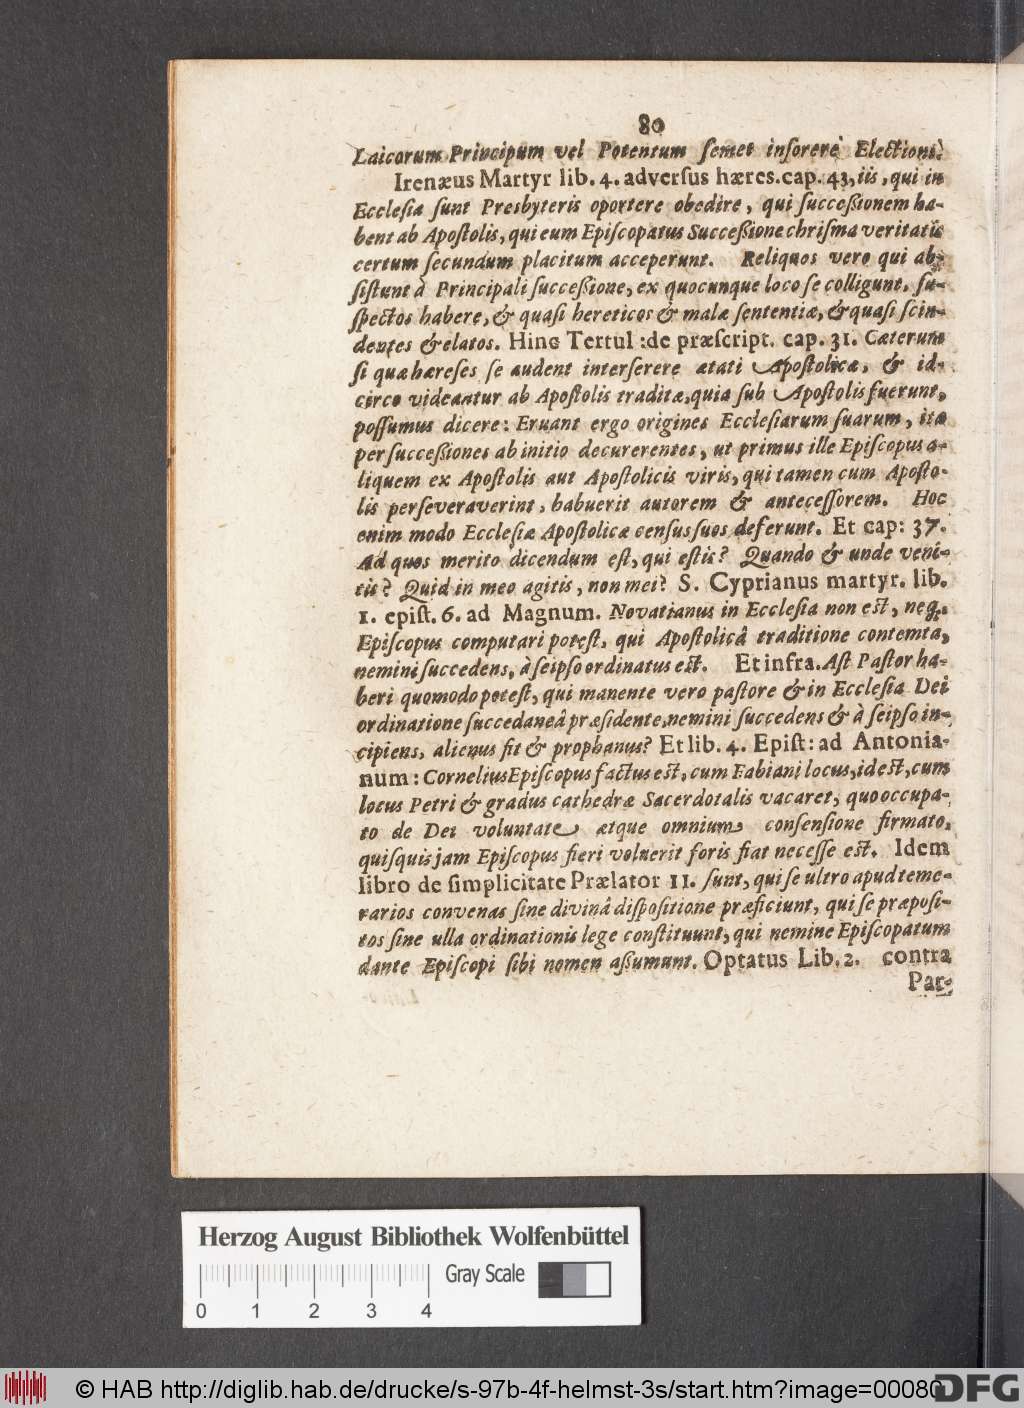 80
Laicorum Principum vel Potentum ſemet inſorere Electioni.
Irenæus Martyr lib. 4. adverſus hæres. cap. 43, iis, qui in
Eccleſia ſunt Presbyteris oportere obedire, qui ſucceßionem ha-
bent ab Apoſtolis, qui eum Epiſcopatus Succeßione chriſma veritatis
certum ſecundum placitum acceperunt. Reliquos vero qui ab-
ſiſtunt à Principali ſucceßione, ex quocunque loco ſe colligunt, ſu-
ſpectos habere, & quaſi hereticos & malæ ſententiæ, & quaſi ſcin-
dentes & elatos. Hinc Tertul :de præſcript. cap. 31. Cæterum
ſi quæ hæreſes ſe audent interſerere ætati Apoſtolicæ, & id-
circo videantur ab Apoſtolis traditæ, quia ſub Apoſtolis fuerunt,
poſſumus dicere: Eruant ergo origines Eccleſiarum ſuarum, ita
per ſucceßiones ab initio decurerentes, ut primus ille Epiſcopus a-
liquem ex Apoſtolis aut Apoſtolicis viris, qui tamen cum Apoſto-
lis perſeveraverint, habuerit autorem & anteceſſorem. Hoc
enim modo Eccleſiæ Apoſtolicæ cenſus ſuos deferunt. Et cap: 37.
Ad quos merito dicendum eſt, qui eſtis? Quando & unde veni-
tis? Quid in meo agitis, non mei? S. Cyprianus martyr. lib.
1. epiſt. 6. ad Magnum. Novatianus in Eccleſia non eſt, neq;
Epiſcopus computari poteſt, qui Apoſtolicâ traditione contemta,
nemini ſuccedens, à ſeipſo ordinatus eſt. Et infra. Aſt Paſtor ha-
beri quomodo poteſt, qui manente vero paſtore & in Eccleſia Dei
ordinatione ſuccedaneâ præſidente, nemini ſuccedens & à ſeipſo in-
cipiens, alienus fit & prophanus? Et lib. 4. Epiſt: ad Antonia-
num: Cornelius Epiſcopus factus eſt, cum Fabiani locus, id eſt, cum
locus Petri & gradus cathedræ Sacerdotalis vacaret, quo occupa-
to de Dei voluntate atque omnium conſenſione firmato,
quiſquis jam Epiſcopus fieri voluerit foris fiat neceſſe eſt. Idem
libro de ſimplicitate Prælator 11. ſunt, qui ſe ultro apud teme-
rarios convenas ſine divinâ diſpoſitione præficiunt, qui ſe præpoſi-
tos ſine ulla ordinationis lege conſtituunt, qui nemine Epiſcopatum
dante Epiſcopi ſibi nomen aßumunt. Optatus Lib. 2. contra
Par-
Herzog August Bibliothek Wolfenbüttel
Gray Scale
0 1 2 3 4
© HAB http://diglib.hab.de/drucke/s-97b-4f-helmst-3s/start.htm?image=00080
DFG